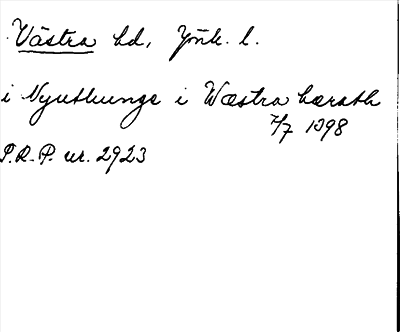 Västra hd, Jönk. l.
i Nyuthunge i Wæstra hæradh
7/7 1398
P.R.P. nr. 2923